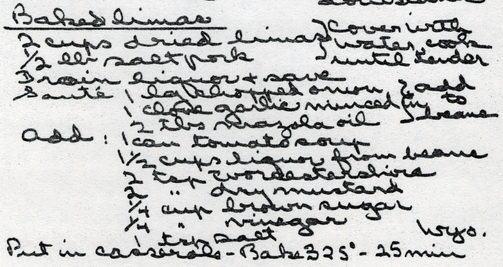 Baked limas
2 cups dried limas } Cover with
1/2 lb salt pork } water, cook
Drain liquor + save } until tender
Sauté 1 lg chopped onion } add
1 clove garlic minced in } to
2 tbs mazola oil } beans
add: 1 can tomato soup
1 1/2 cups liquor from beans
2 tsp worcestershire
2 " dry mustard
1/4 cup brown sugar
1/4 " vinegar
1 tsp salt Wyo.
Put in casserole - Bake 325° - 25 min